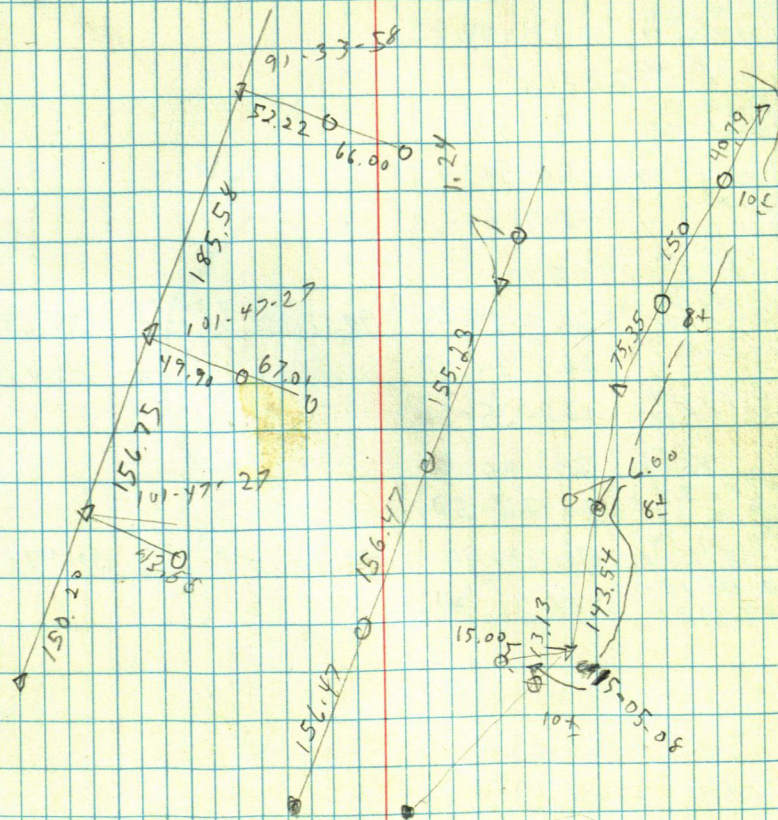 91-33-58
52.22
66.00
185.58
101-47-27
49.90
67.01
156.75
101-47-27
150.20
1.24
155.23
156.47
156.47
40.79
10±
150
8±
75.35
6.00
8±
143.54
15.00
13.13
15-05-08
10±